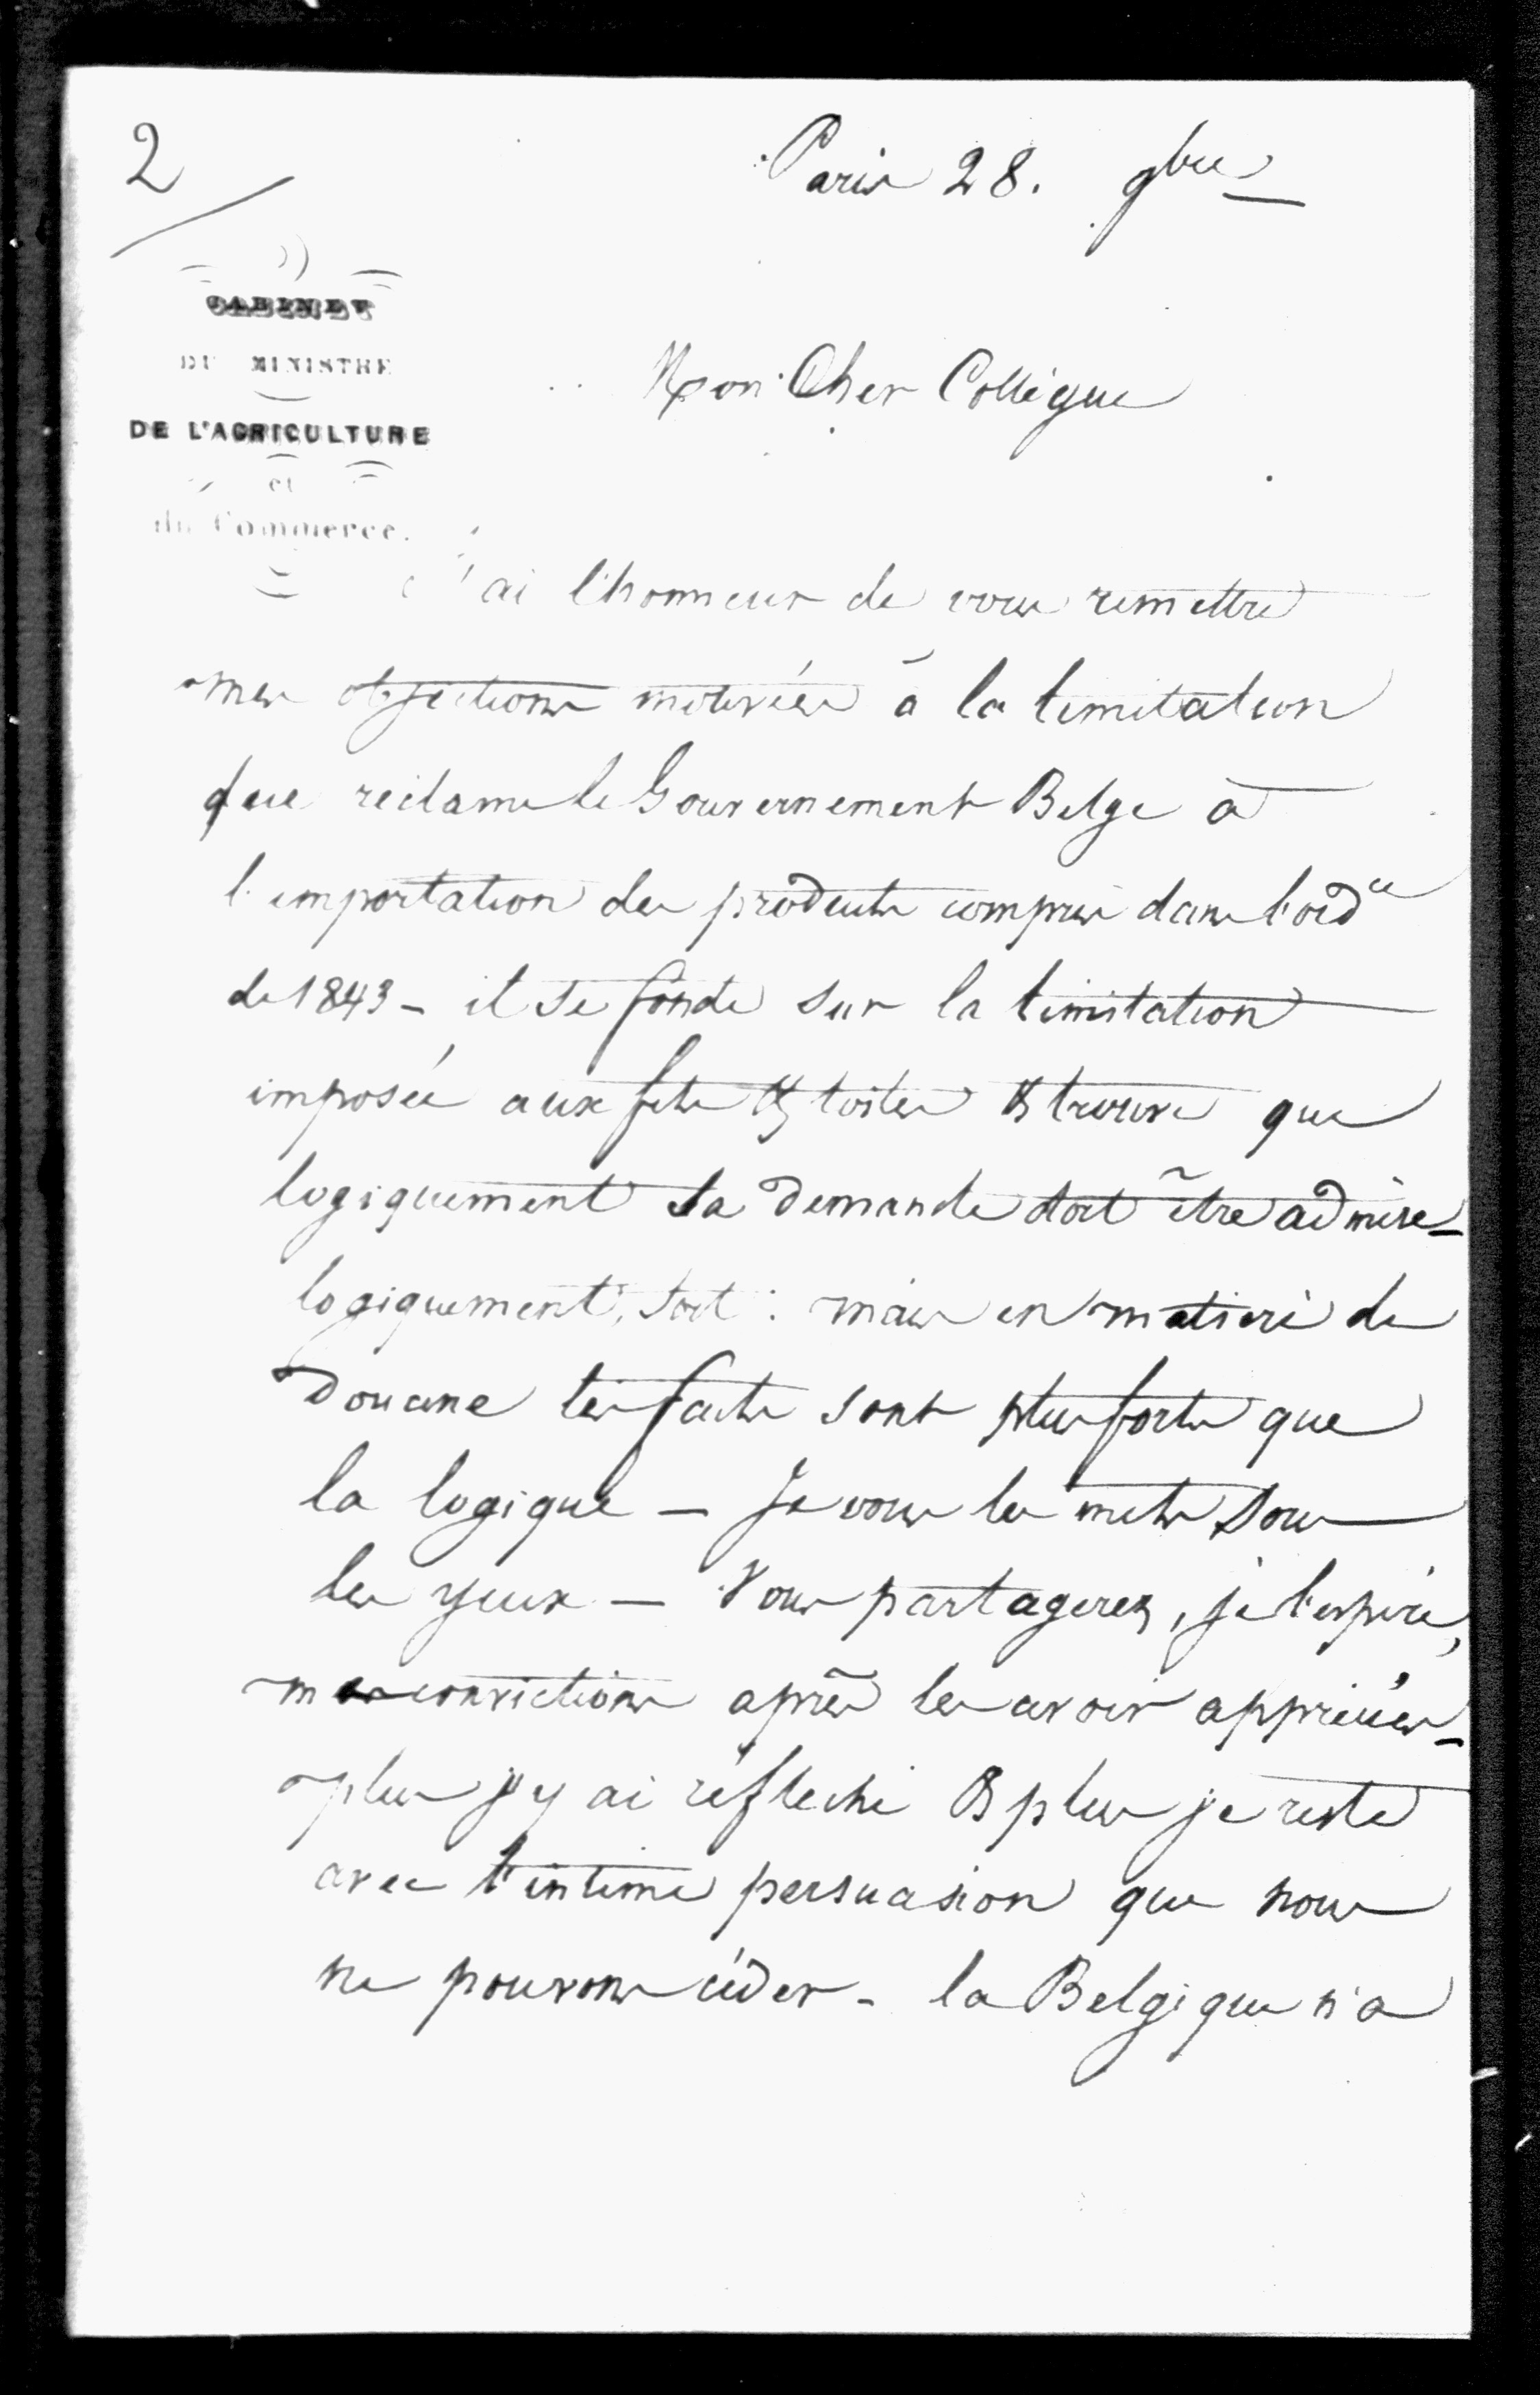 2
Paris 28. 9bre
CABINET
DU MINISTRE
DE L'AGRICULTURE
et
du Commerce.
Mon Cher Collègue
J'ai l'honneur de vous remettre
mes objections motivées à la limitation
que réclame le Gouvernement Belge à
l'importation des produits compris dans l'ordce
de 1843 - il se fonde sur la limitation
imposée aux fils & toiles & trouve que
logiquement sa demande doit être admise -
logiquement, soit : mais en matière de
Douane les faits sont plus forts que
la logique - Je vous les mets sous
les yeux - Vous partagerez, je l'espère,
mes convictions après les avoir appréciés -
plus j'y ai réfléchi & plus je reste
avec l'intime persuasion que nous
ne pouvons céder - la Belgique n'a